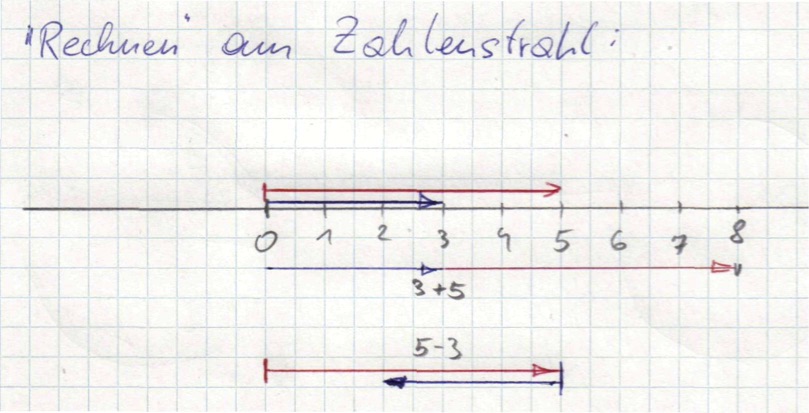 "Rechnen" am Zahlenstrahl:
0 1 2 3 4 5 6 7 8
3+5
5-3